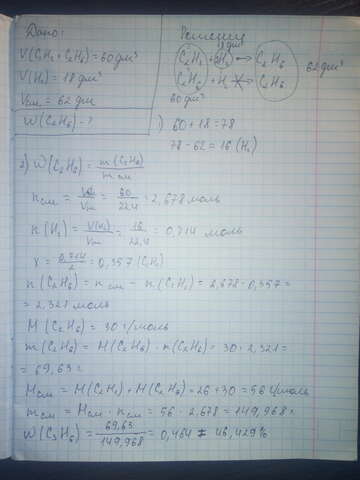 Дано:
V(C₂H₂ + C₂H₆) = 60 дм³
V(H₂) = 18 дм³
Vсм = 62 дм
W(C₂H₆) - ?
Решение
18 дм³
C₂H₂ + H₂ ↔ C₂H₆
62 дм³
C₂H₆ + H₂ ↛ C₂H₆
60 дм³
1) 60 + 18 = 78
78 - 62 = 16 (H₂)
2) W(C₂H₆) = m(C₂H₆) / mсм
nсм = Vсм / Vm = 60 / 22,4 = 2,678 моль
n(H₂) = V(H₂) / Vm = 16 / 22,4 = 0,714 моль
x = 0,714 / 2 = 0,357 (C₂H₂)
n(C₂H₆) = nсм - n(C₂H₂) = 2,678 - 0,357 =
= 2,321 моль
M(C₂H₆) = 30 г/моль
m(C₂H₆) = M(C₂H₆) · n(C₂H₆) = 30 · 2,321 =
= 69,63 г
Mсм = M(C₂H₂) + M(C₂H₆) = 26 + 30 = 56 г/моль
mсм = Mсм · nсм = 56 · 2,678 = 149,968 г
W(C₂H₆) = 69,63 / 149,968 = 0,464 = 46,429%